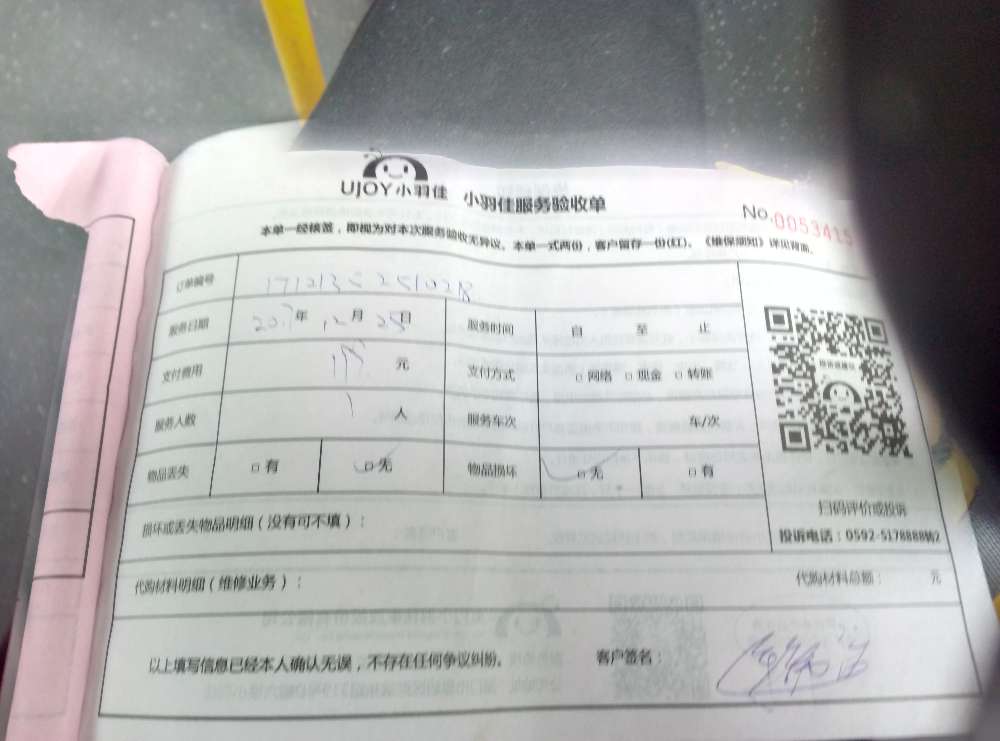 UJOY小羽佳 小羽佳服务验收单
No.0053415
本单一经核签，即视为对本次服务验收无异议。本单一式两份，客户留存一份(红)。《维保须知》详见背面。
订单编号 171213525102B
服务日期 2017年 12月 25日 服务时间 自 至 止
支付费用 元 支付方式 □ 网络 □ 现金 □ 转账
服务人数 1 人 服务车次 车/次
物品丢失 □ 有 □ 无 物品损坏 □ 无 □ 有
扫码评价或投诉
损坏或丢失物品明细（没有可不填）：
投诉电话：0592-5178888转2
代购材料明细（维修业务）： 代购材料总额： 元
以上填写信息已经本人确认无误，不存在任何争议纠纷。 客户签名：